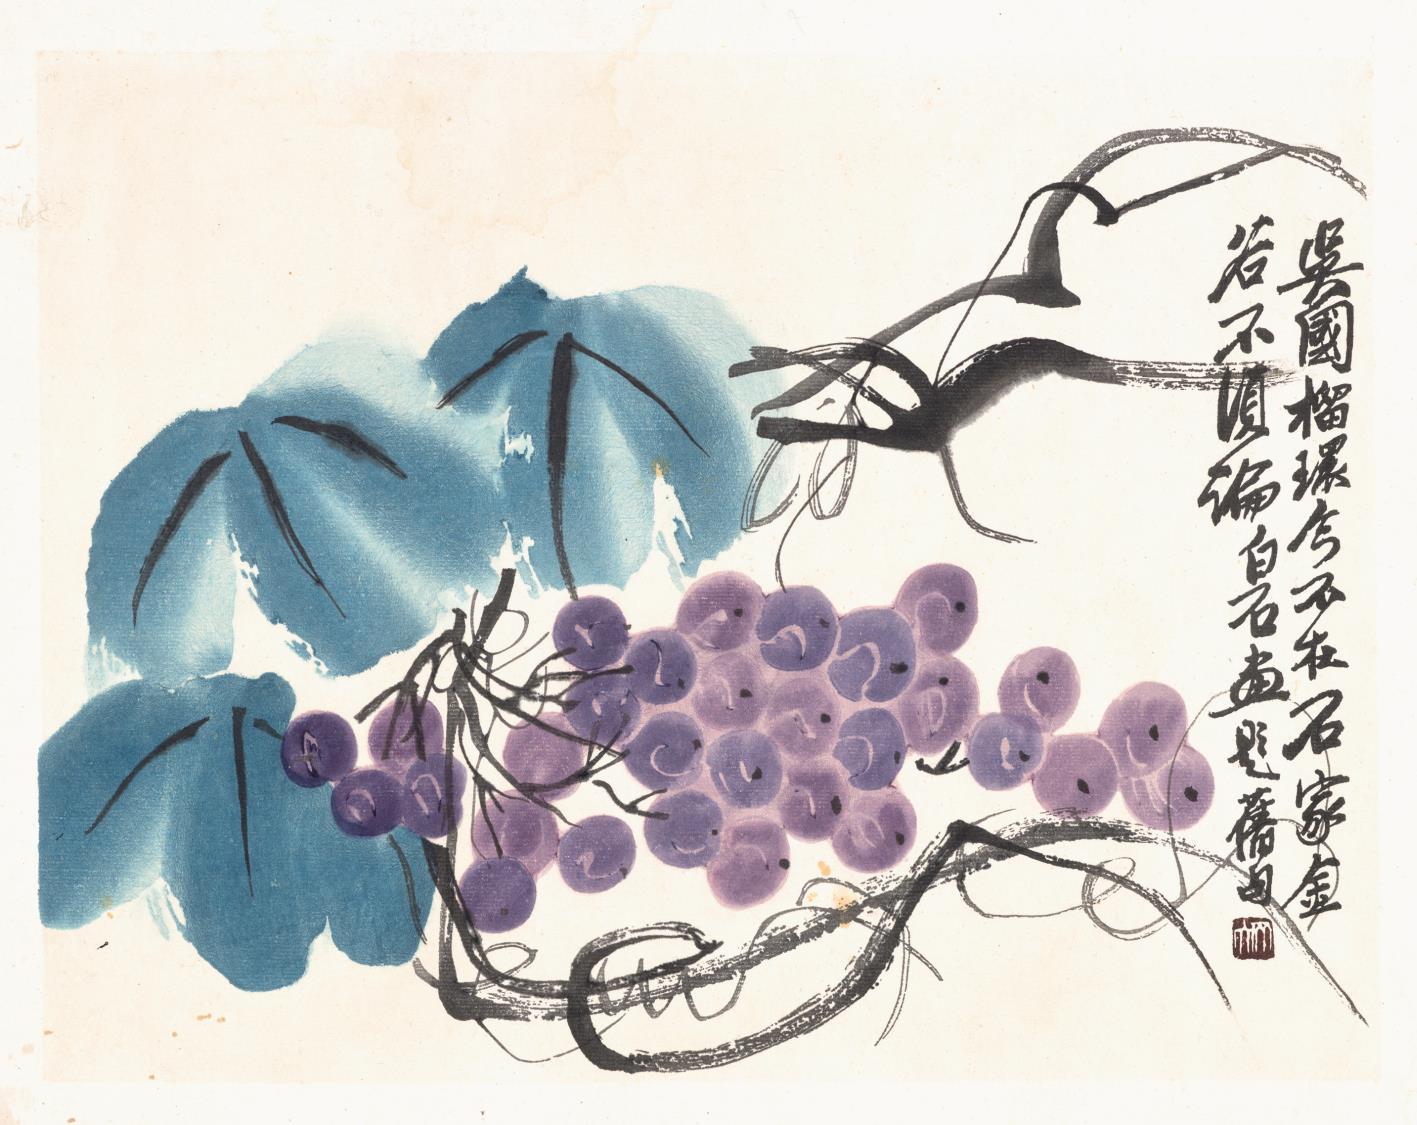 吳國榴環今不在石家金
若不須論白石畫題舊句